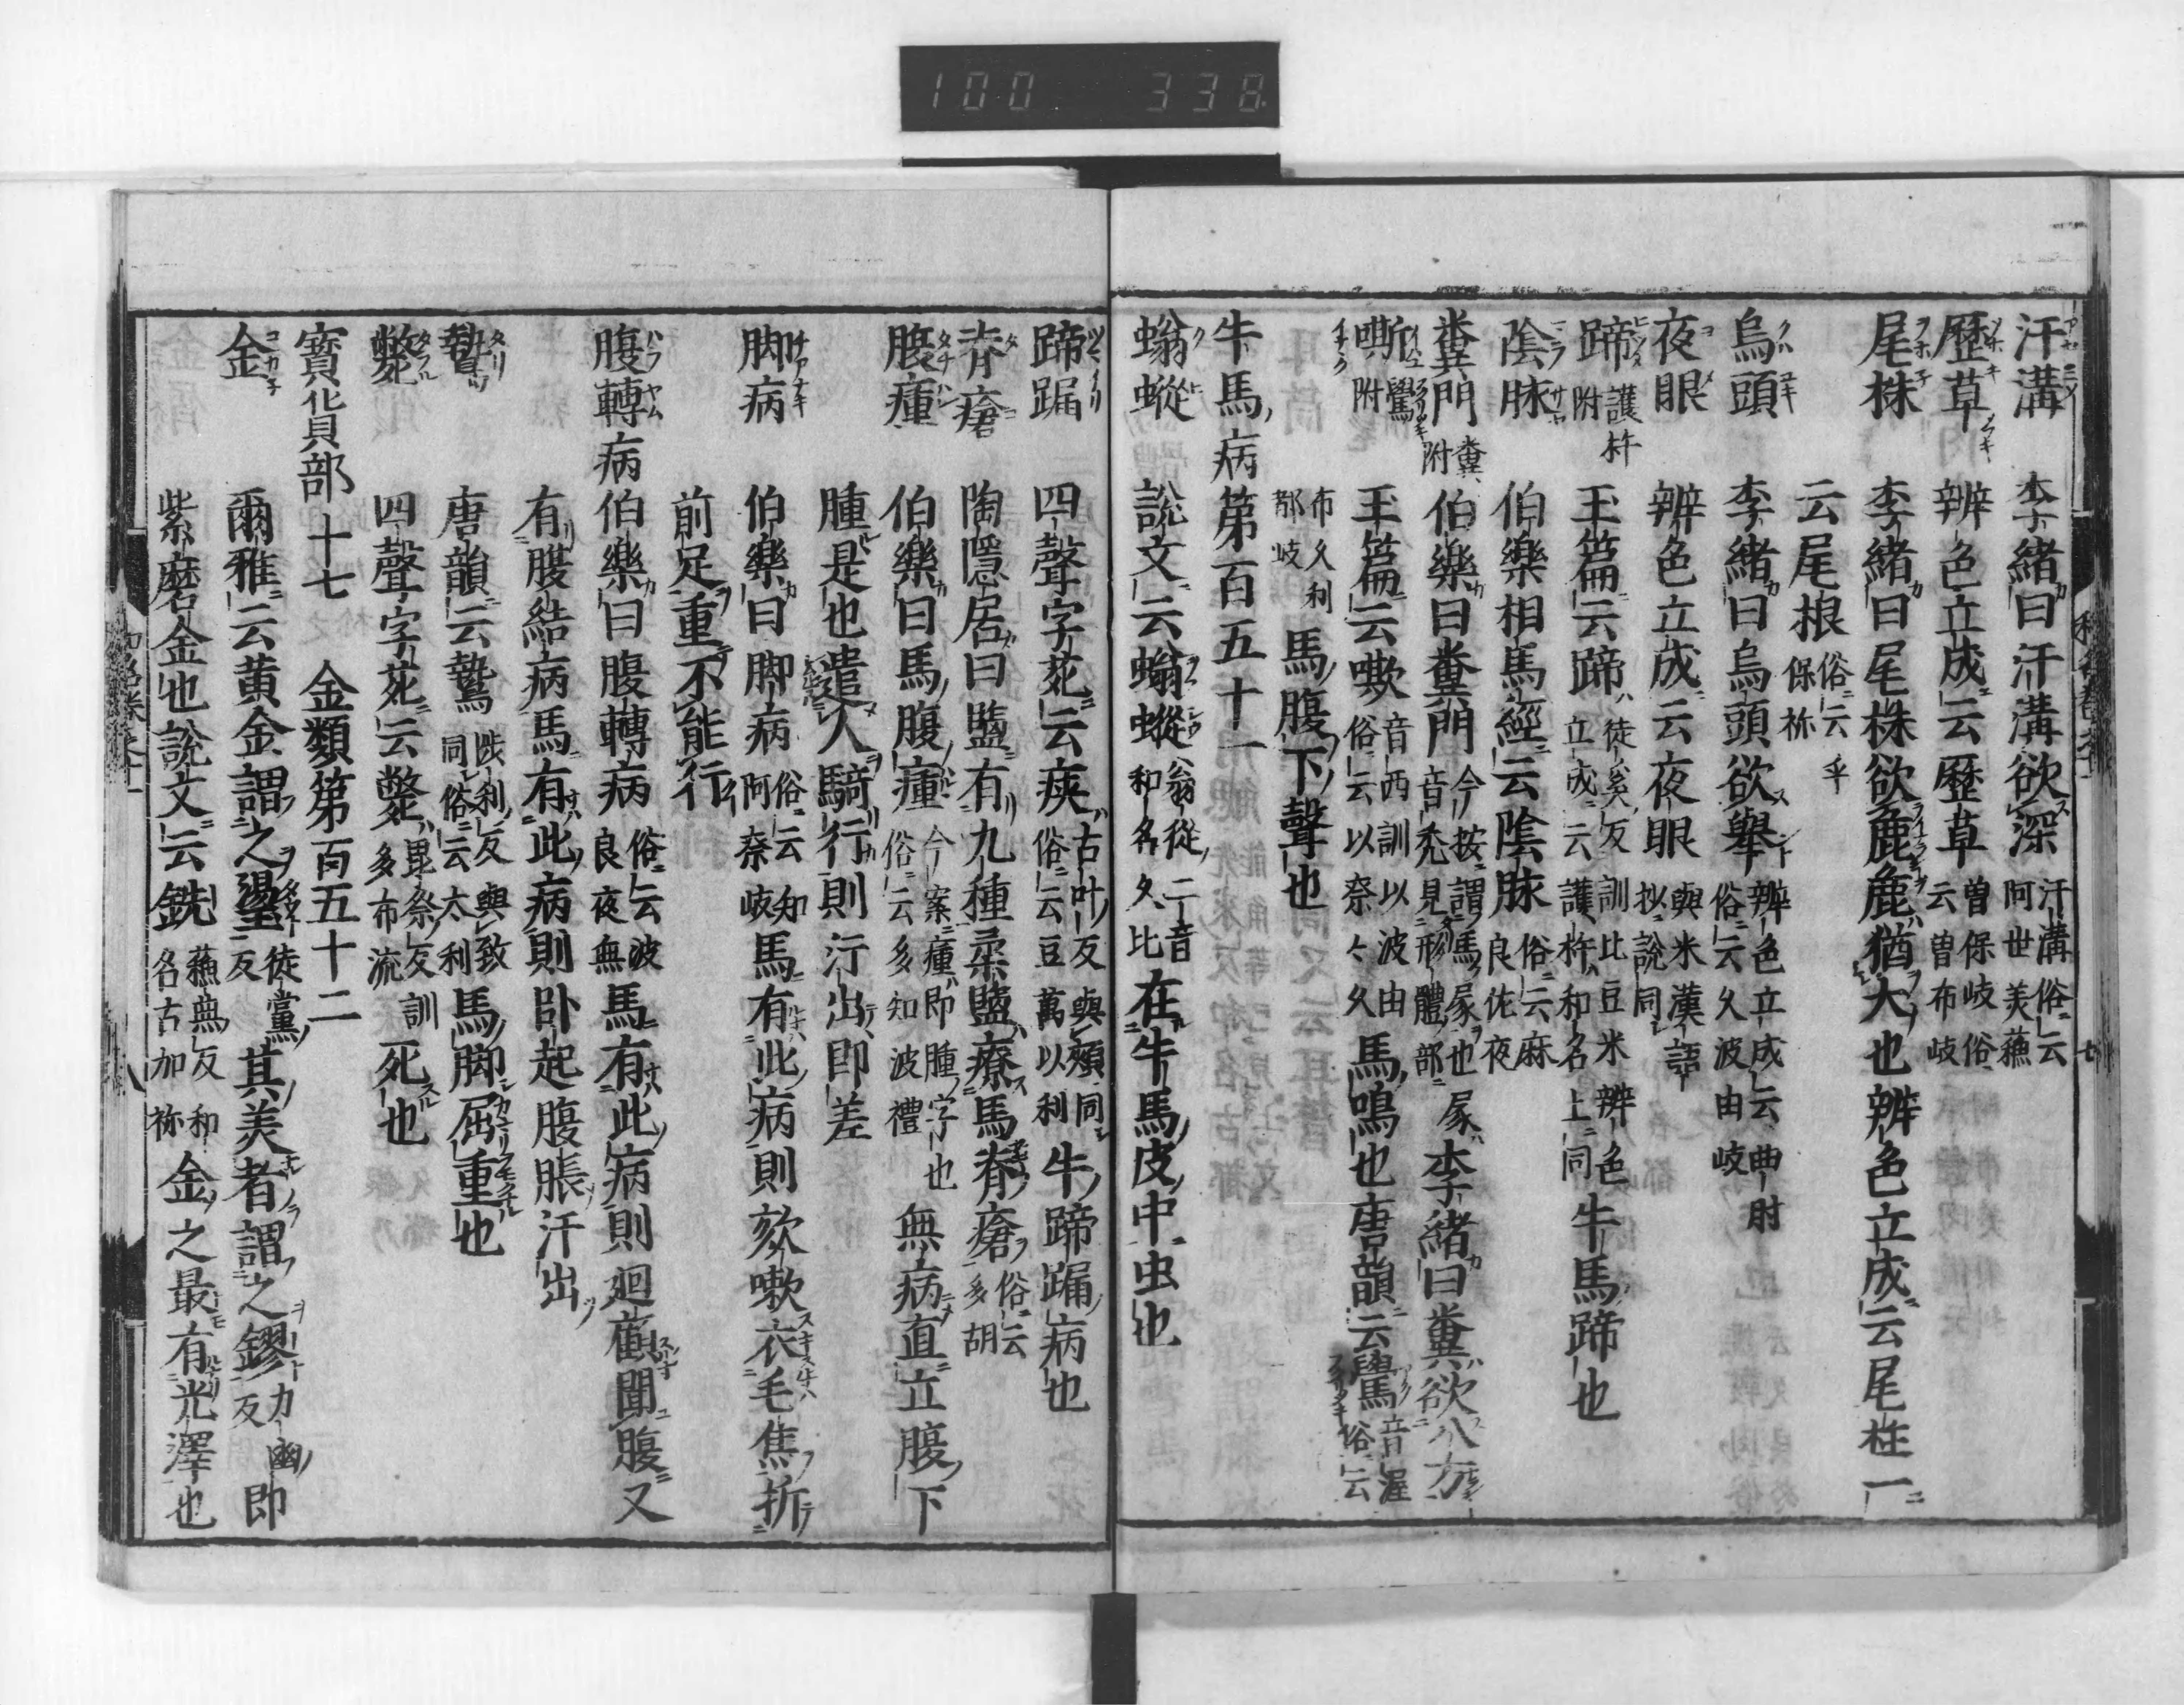 100 338
汗溝 李緒曰汗溝欲深 汗溝俗云阿世美蘓
歷草 辨色立成云歷草 曽保岐俗云曽布岐
尾株 李緒曰尾株欲麁麁猶大也辨色立成云尾柱一
云尾根 俗云乎保祢
烏頭 李緒曰烏頭欲舉 辨色立成云曲肘俗云久波由岐
夜眼 辨色立成云夜眼 與米漢語抄説同
蹄 護杵附 玉篇云蹄 徒奚反訓比豆米辨色立成云護杵和名上同 牛馬蹄也
陰脉 伯樂相馬經云陰脉 俗云麻良佐夜
糞門 糞附 伯樂曰糞門 今按謂馬㞘也㞘音禿見形體部 李緒曰糞欲八方
嘶 附 玉篇云嘶 音西訓以波由俗云以奈々久 馬鳴也唐韻云 音渥俗云
布久利都岐 馬腹下聲也
牛馬病第百五十一
螉䗥 説文云螉䗥 翁從二音和名久比 在牛馬皮中虫也
蹄漏 四聲字苑云㾜 古叶反與頰同俗云豆萬以利 牛蹄漏病也
脊瘡 陶隱居曰鹽有九種柔鹽療馬脊瘡 俗云多胡
腹㾿 伯樂曰馬腹㾿 今案㾿即腫字也俗云多知波禮 無病直立腹下
腫是也遣人騎行則汗出即差
脚病 伯樂曰脚病 俗云知阿奈岐 馬有此病則欬嗽衣毛焦折
前足重不能行
腹轉病 伯樂曰腹轉病 俗云波良夜無 馬有此病則迴顧聞腹又
有腹結病馬有此病則卧起腹脹汗出
鷙 唐韻云鷙 陟利反與致同俗云太利 馬脚屈重也
斃 四聲字苑云斃 毘祭反訓多布流 死也
寳貨部十七 金類第百五十二
金 爾雅云黄金謂之璗 徒黨反 其美者謂之鏐 力幽反 即
紫磨金也説文云銑 蘓典反和名古加祢 金之最有光澤也